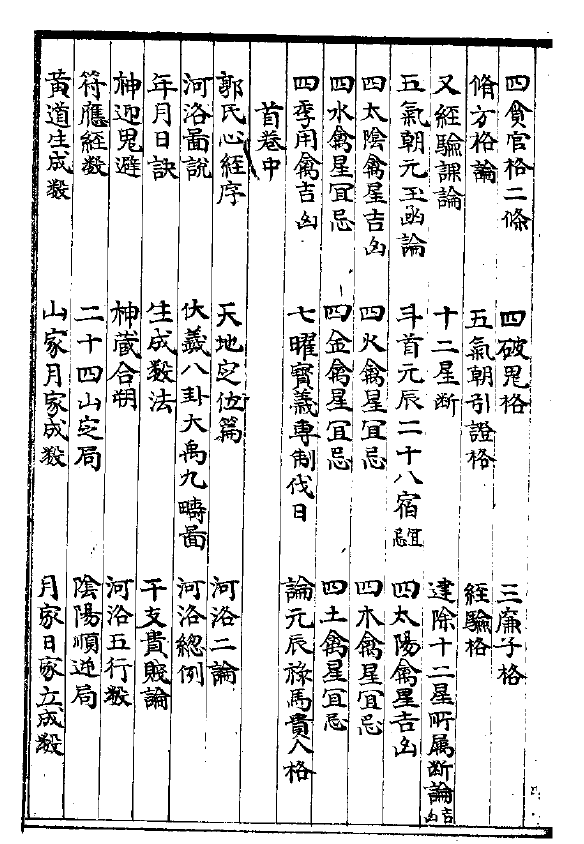 四貪官格二條　四破鬼格　三廉子格
脩方格論　五氣朝引證格　經驗格
又經驗課論　十二星断　建除十二星所属断論吉凶
五氣朝元玉函論　斗首元辰二十八宿宜忌　四太陽禽星吉凶
四太陰禽星吉凶　四火禽星宜忌　四木禽星宜忌
四水禽星宜忌　四金禽星宜忌　四土禽星宜忌
四季用禽吉凶　七曜寳義専制伐日　論元辰祿馬貴人格
首卷中
郭氏心經序　天地定位篇　河洛二論
河洛圖説　伏義八卦大禹九疇圖　河洛總例
年月日訣　生成数法　干支貴賤論
神迎鬼避　神蔵合朔　河洛五行数
符應經数　二十四山定局　陰陽順逆局
黃道生成数　山家月家成数　月家日家立成数